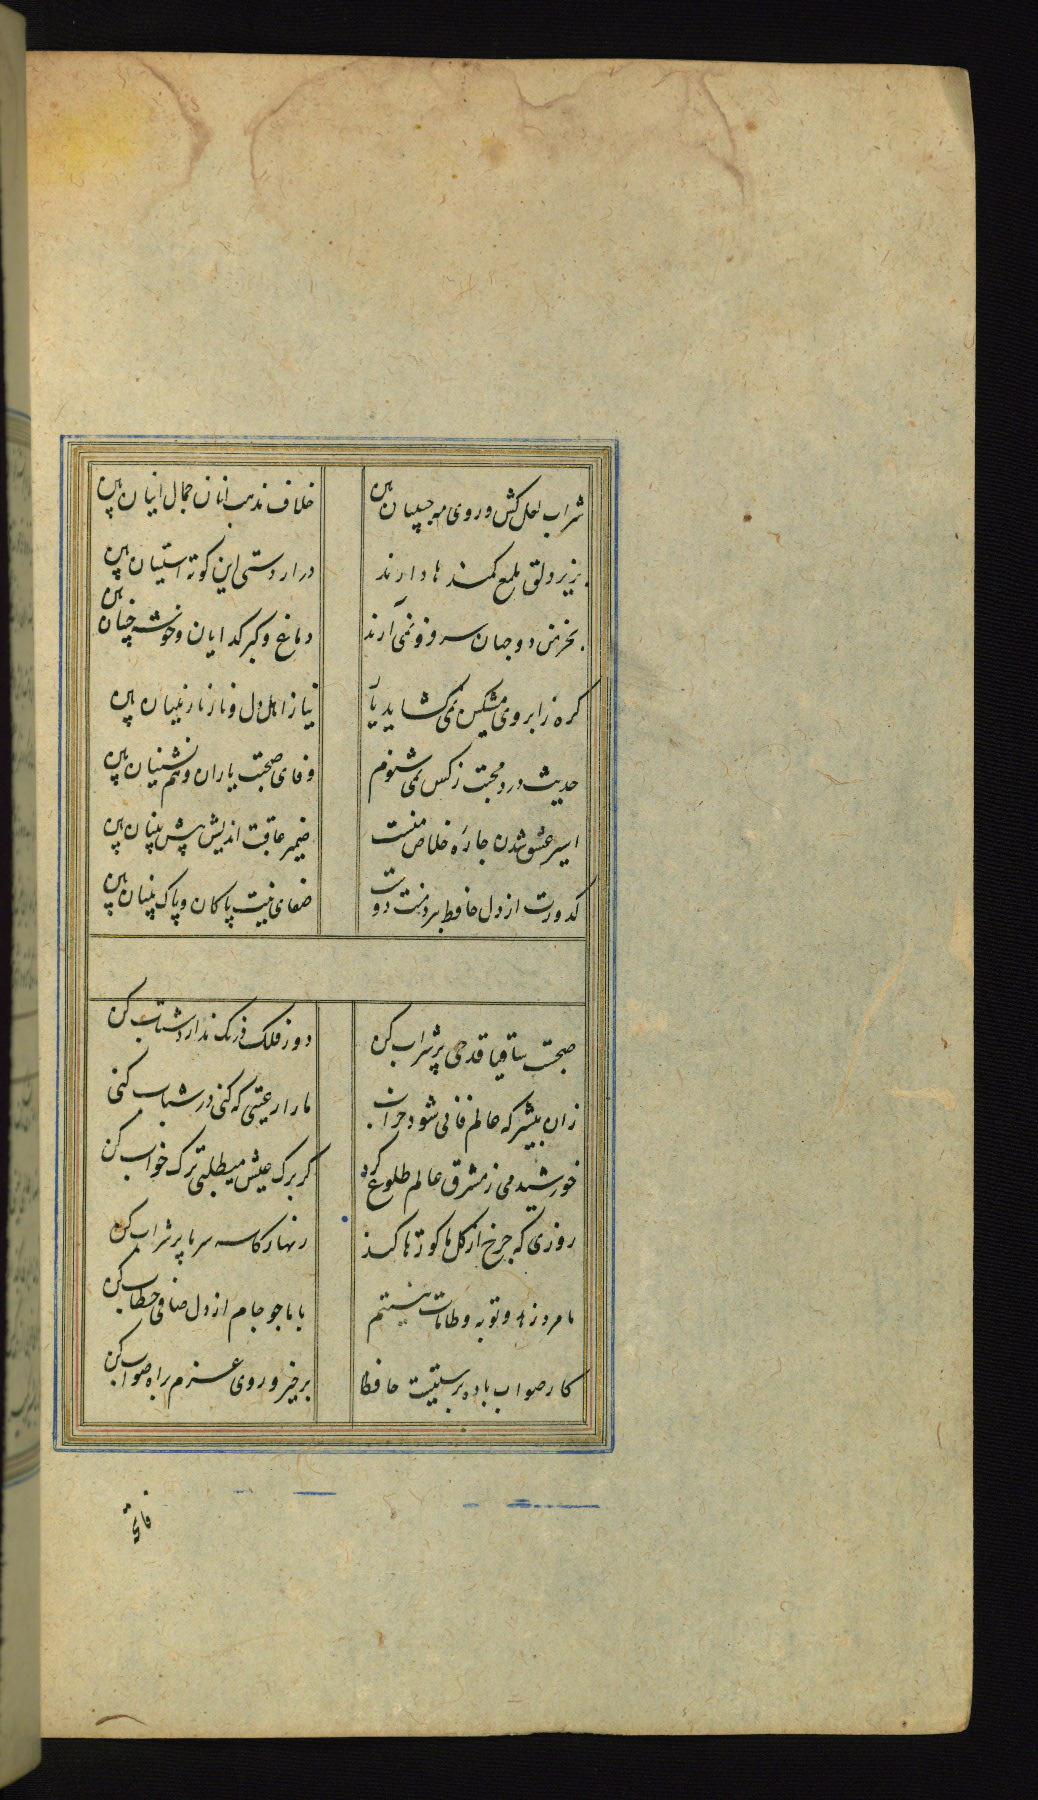 شراب لعل کش و روی مه جبینان بین
خلاف مذهب آنان جمال اینان بین
بزیر دلق ملمع کمندها دارند
دراز دستی این کوته آستینان بین
بخرمن دو جهان سر فرو نمی آرند
دماغ و کبر کدایان و خوشه چینان بین
کره ز ابروی مشکین نمی کشاید یار
نیاز اهل دل و ناز نازنینان بین
حدیث درد محبت ز کس نمی شنوم
وفای صحبت یاران و همنشینان بین
اسیر عشق شدن چاره خلاص منست
ضمیر عاقبت اندیش پیش بینان بین
کدورت از دل حافظ ببرد صحبت دوست
صفای نیت پاکان و پاک بینان بین
صبحست ساقیا قدحی پر شراب کن
دور فلک درنک ندارد شتاب کن
زان بیشتر که عالم فانی شود خراب
خورشید می ز مشرق عالم طلوع کرد
کر برک عیش میطلبی ترک خواب کن
روزی که چرخ از کل ما کوزها کند
زنهار کاسه سر ما پر شراب کن
ما مرد زهد و توبه و طامات نیستیم
با ما بجام از دل صافی خطاب کن
کار صواب باده پرستیست حافظا
برخیز و روی عزم براه صواب کن